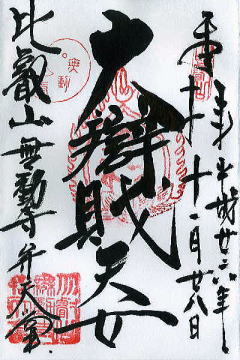 奉拝
平成廿六年
十一月廿八日
大辯財天女
比叡山無動寺弁天堂